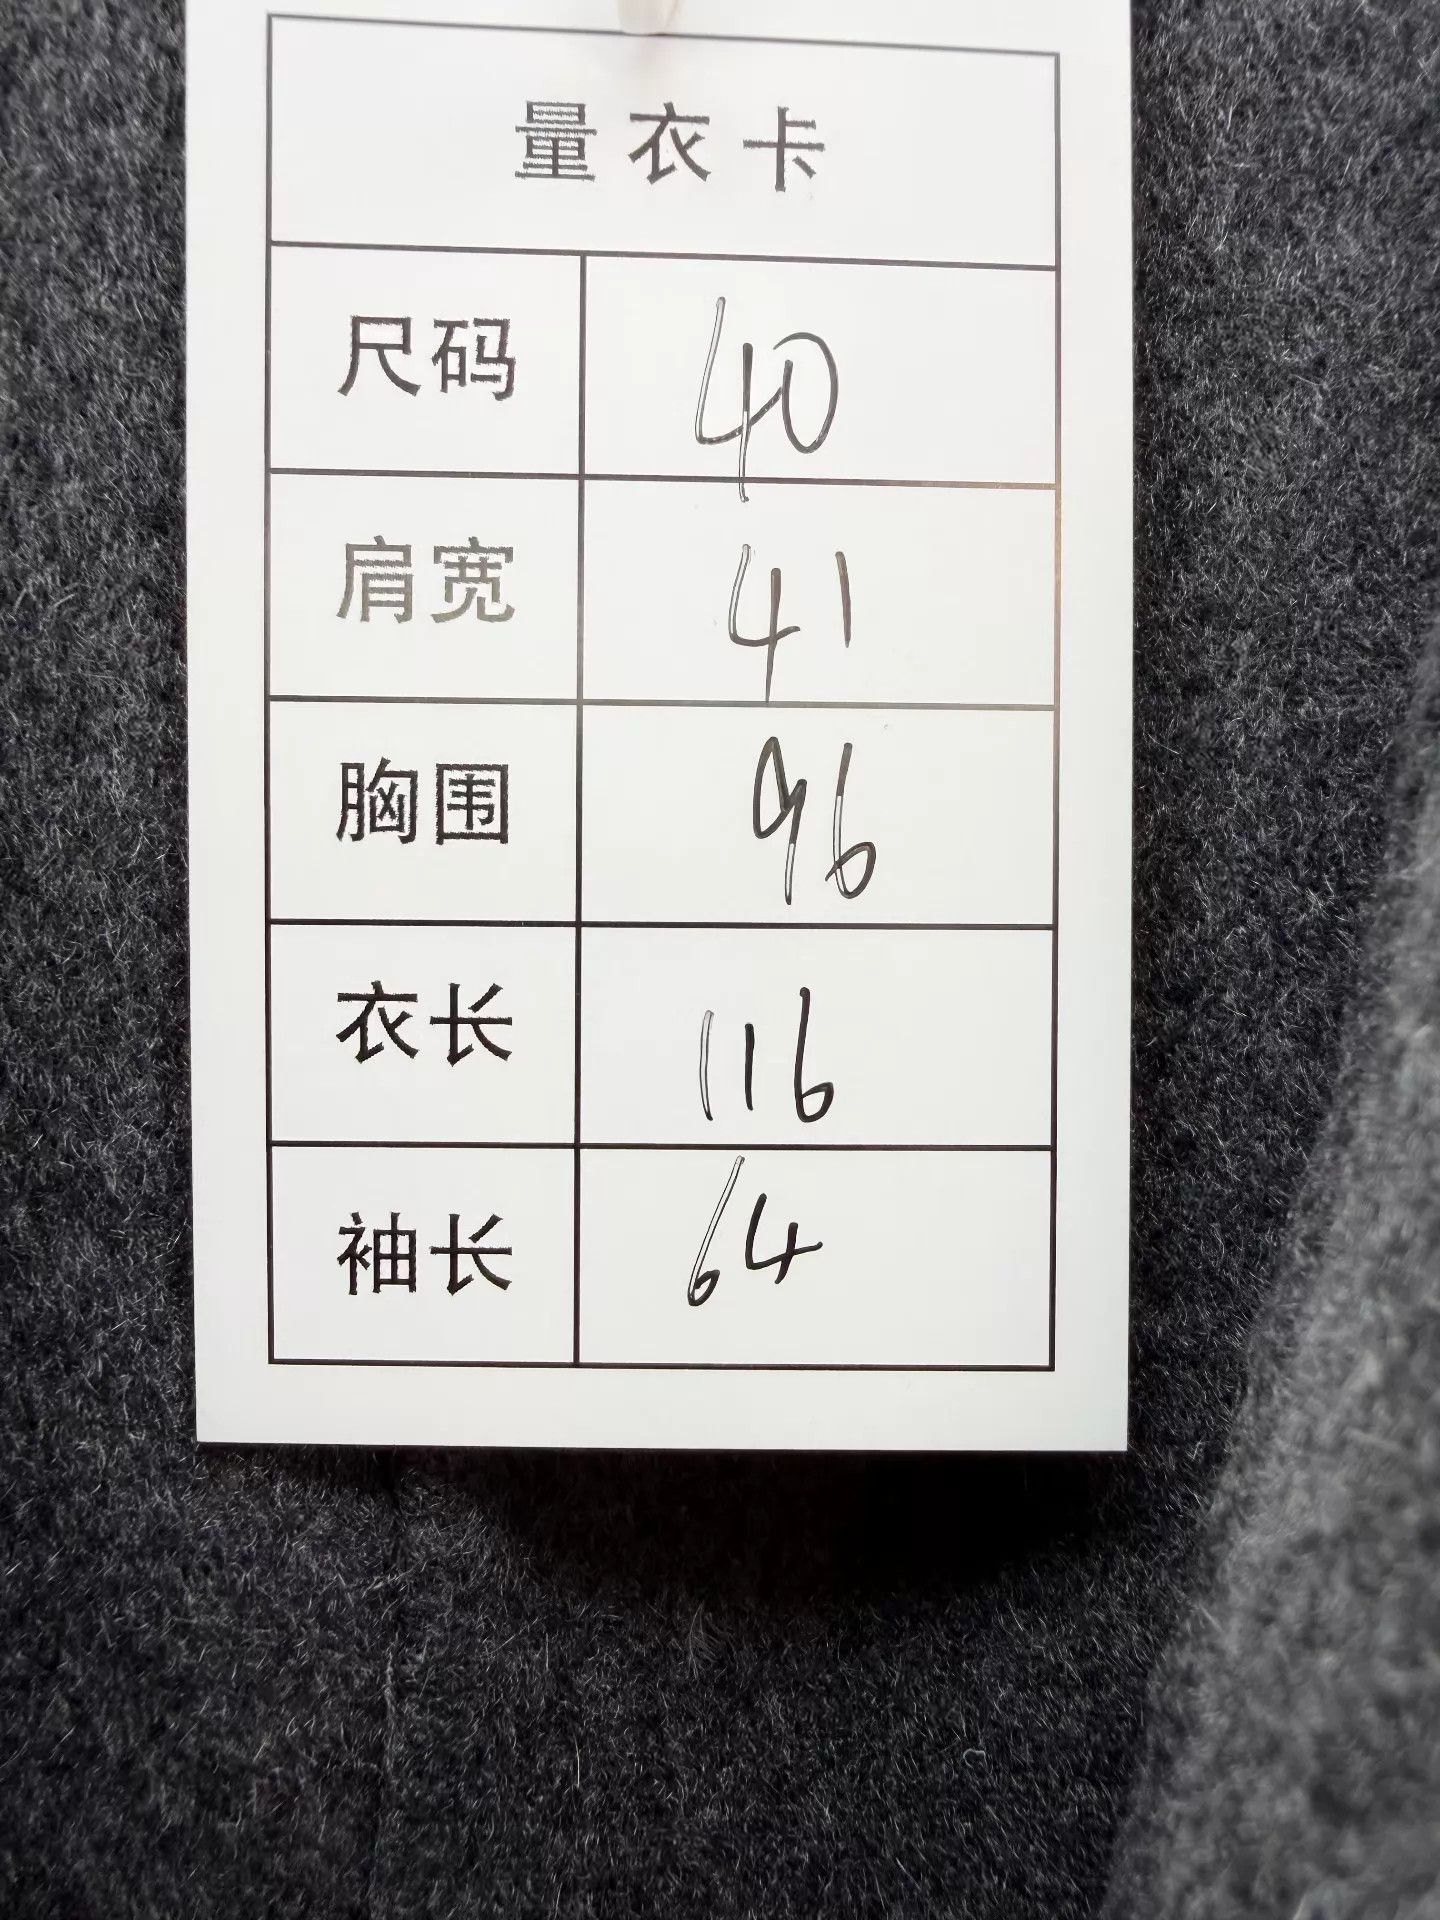 量衣卡
尺码 40
肩宽 41
胸围 96
衣长 116
袖长 64